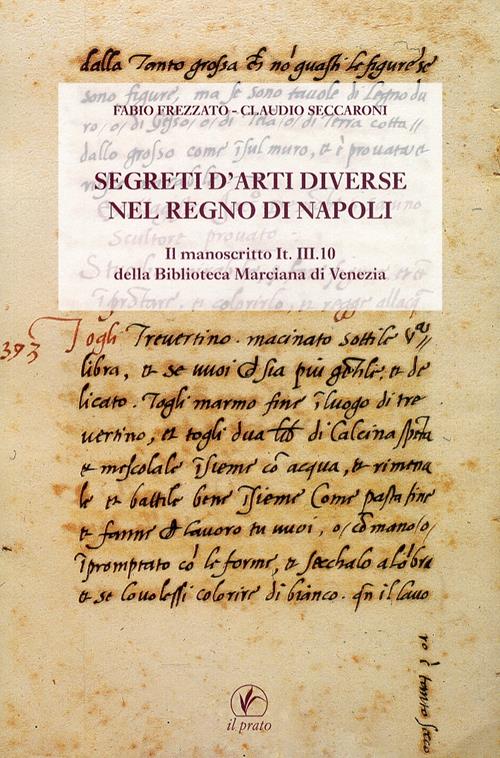 dalla Tanto grossa & nō guasti le figure se
sono figure, ma se sono tauole di Legno du
FABIO FREZZATO - CLAUDIO SECCARONI
ro/o/di gesso/o/di Tela/o/di Terra cotta//
dallo grosso come ī sul muro, et è prouata et
SEGRETI D'ARTI DIVERSE
NEL REGNO DI NAPOLI
Scultore prouato
Il manoscritto It. III.10
della Biblioteca Marciana di Venezia
colorirlo, et regge allacq̄
393 Togli Treuertino. macinato sottile
libra, et se uuoi & sia più gētile, et de
licato. Togli marmo fine ī luogo di tre
uertino, et togli dua lib di Calcina spēta
et mescolale īsieme cō acqua, et rimena
le et battile bene īsieme Come pasta fine
et fanne & lauoro tu uuoi, o/cō mano/o/
īpromptato cō le forme, et secchalo alōbra
et se lo uolessi colorire di bianco. qn̄ il lauo
ro è tanto secco
il prato